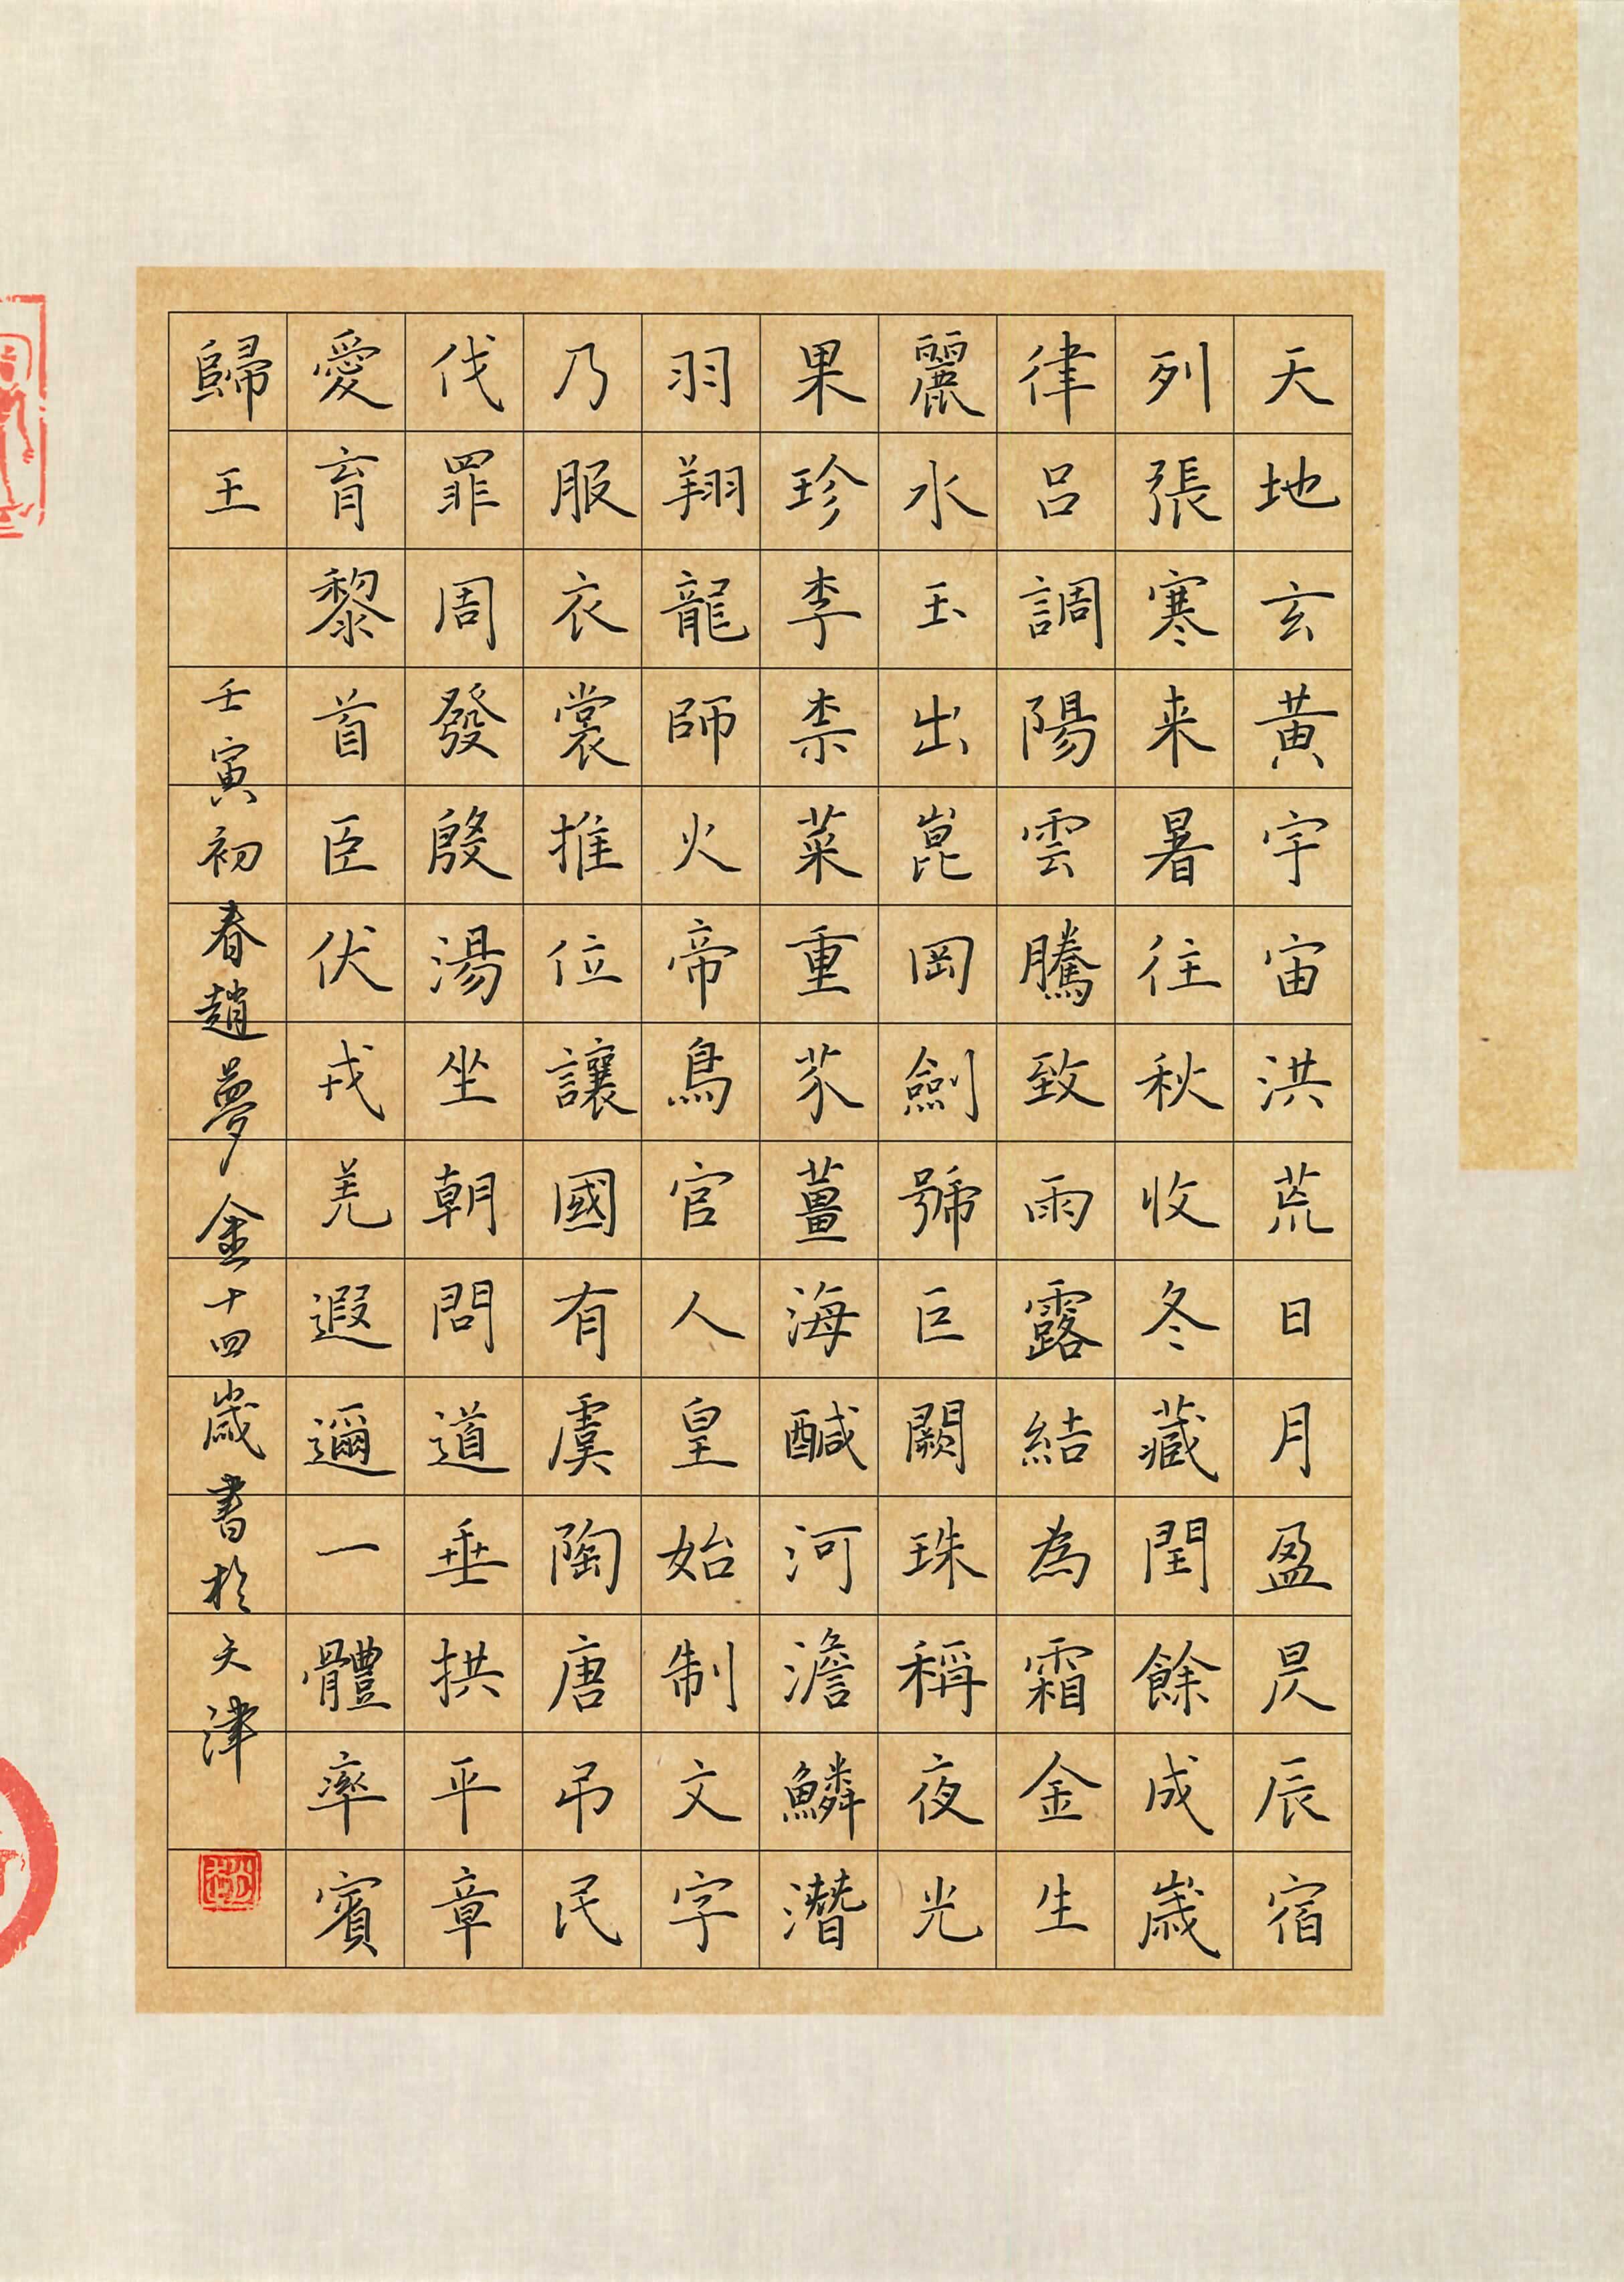 天地玄黃宇宙洪荒日月盈昃辰宿
列張寒来暑往秋收冬藏閏餘成歲
律呂調陽雲騰致雨露結為霜金生
麗水玉出崑岡劍號巨闕珠稱夜光
果珍李柰菜重芥薑海鹹河澹鱗潛
羽翔龍師火帝鳥官人皇始制文字
乃服衣裳推位讓國有虞陶唐弔民
伐罪周發殷湯坐朝問道垂拱平章
愛育黎首臣伏戎羌遐邇一體率賓
歸王
壬寅初春趙夢金十四歲書於天津
趙